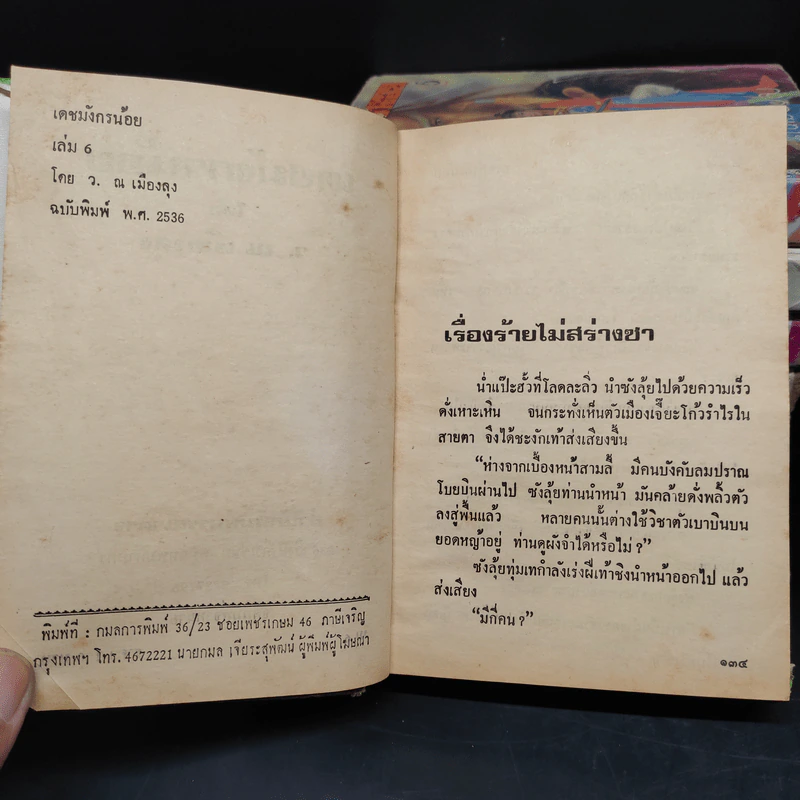 เดชมังกรน้อย
เล่ม 6
โดย ว. ณ เมืองลุง
ฉบับพิมพ์ พ.ศ. 2536
พิมพ์ที่ : กมลการพิมพ์ 36/23 ซอยเพชรเกษม 46 ภาษีเจริญ
กรุงเทพฯ โทร. 4672221 นายกมล เจียระสุพัฒน์ ผู้พิมพ์ผู้โฆษณา
เรื่องร้ายไม่สร่างซา
น่ำแป๊ะฮั้วที่โลดละลิ่ว นำซังลุ้ยไปด้วยความเร็ว
ดั่งเหาะเหิน จนกระทั่งเห็นตัวเมืองเจี๊ยะโก้วรำไรใน
สายตา จึงได้ชะงักเท้าส่งเสียงขึ้น
“ห่างจากเบื้องหน้าสามลี้ มีคนบังคับลมปราณ
โบยบินผ่านไป ซังลุ้ยท่านนำหน้า มันคล้ายดั่งพลิ้วตัว
ลงสู่พื้นแล้ว หลายคนนั้นต่างใช้วิชาตัวเบาบินบน
ยอดหญ้าอยู่ ท่านดูผังจำได้หรือไม่ ?”
ซังลุ้ยทุ่มเทกำลังเร่งฝีเท้าชิงนำหน้าออกไป แล้ว
ส่งเสียง
“มีกี่คน ?”
๑๓๔